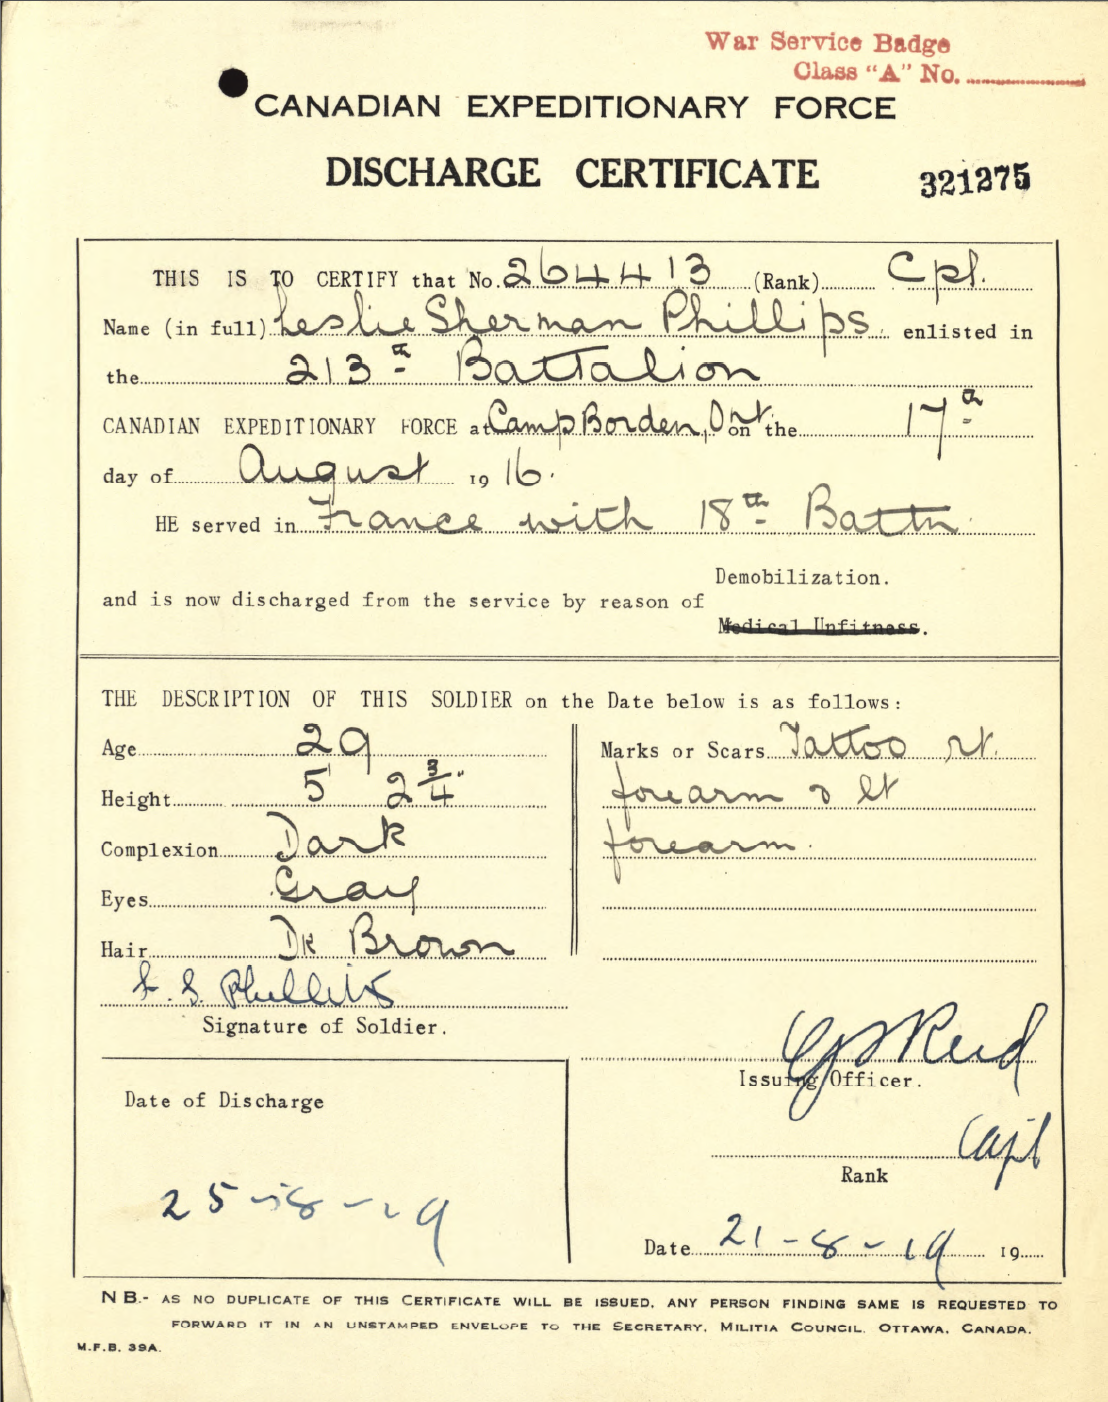 War Service Badge
Class "A" No.
CANADIAN EXPEDITIONARY FORCE
DISCHARGE CERTIFICATE
321275
THIS IS TO CERTIFY that No. 264413 (Rank) Cpl.
Name (in full) Leslie Sherman Phillips enlisted in
the 213th Battalion
CANADIAN EXPEDITIONARY FORCE at Camp Borden, Ont. on the 17th
day of August 1916.
HE served in France with 18th Battn
Demobilization.
and is now discharged from the service by reason of
Medical Unfitness.
THE DESCRIPTION OF THIS SOLDIER on the Date below is as follows:
Age 29
Height 5' 2 3/4"
Complexion Dark
Eyes Gray
Hair Dk Brown
Marks or Scars Tattoo rt.
forearm & lt
forearm.
L. S. Phillips
Signature of Soldier.
Issuing Officer.
Capt
Rank
Date of Discharge
25-8-19
Date 21-8-19 19
N B.- AS NO DUPLICATE OF THIS CERTIFICATE WILL BE ISSUED, ANY PERSON FINDING SAME IS REQUESTED TO
FORWARD IT IN AN UNSTAMPED ENVELOPE TO THE SECRETARY, MILITIA COUNCIL, OTTAWA, CANADA.
M.F.B. 39A.